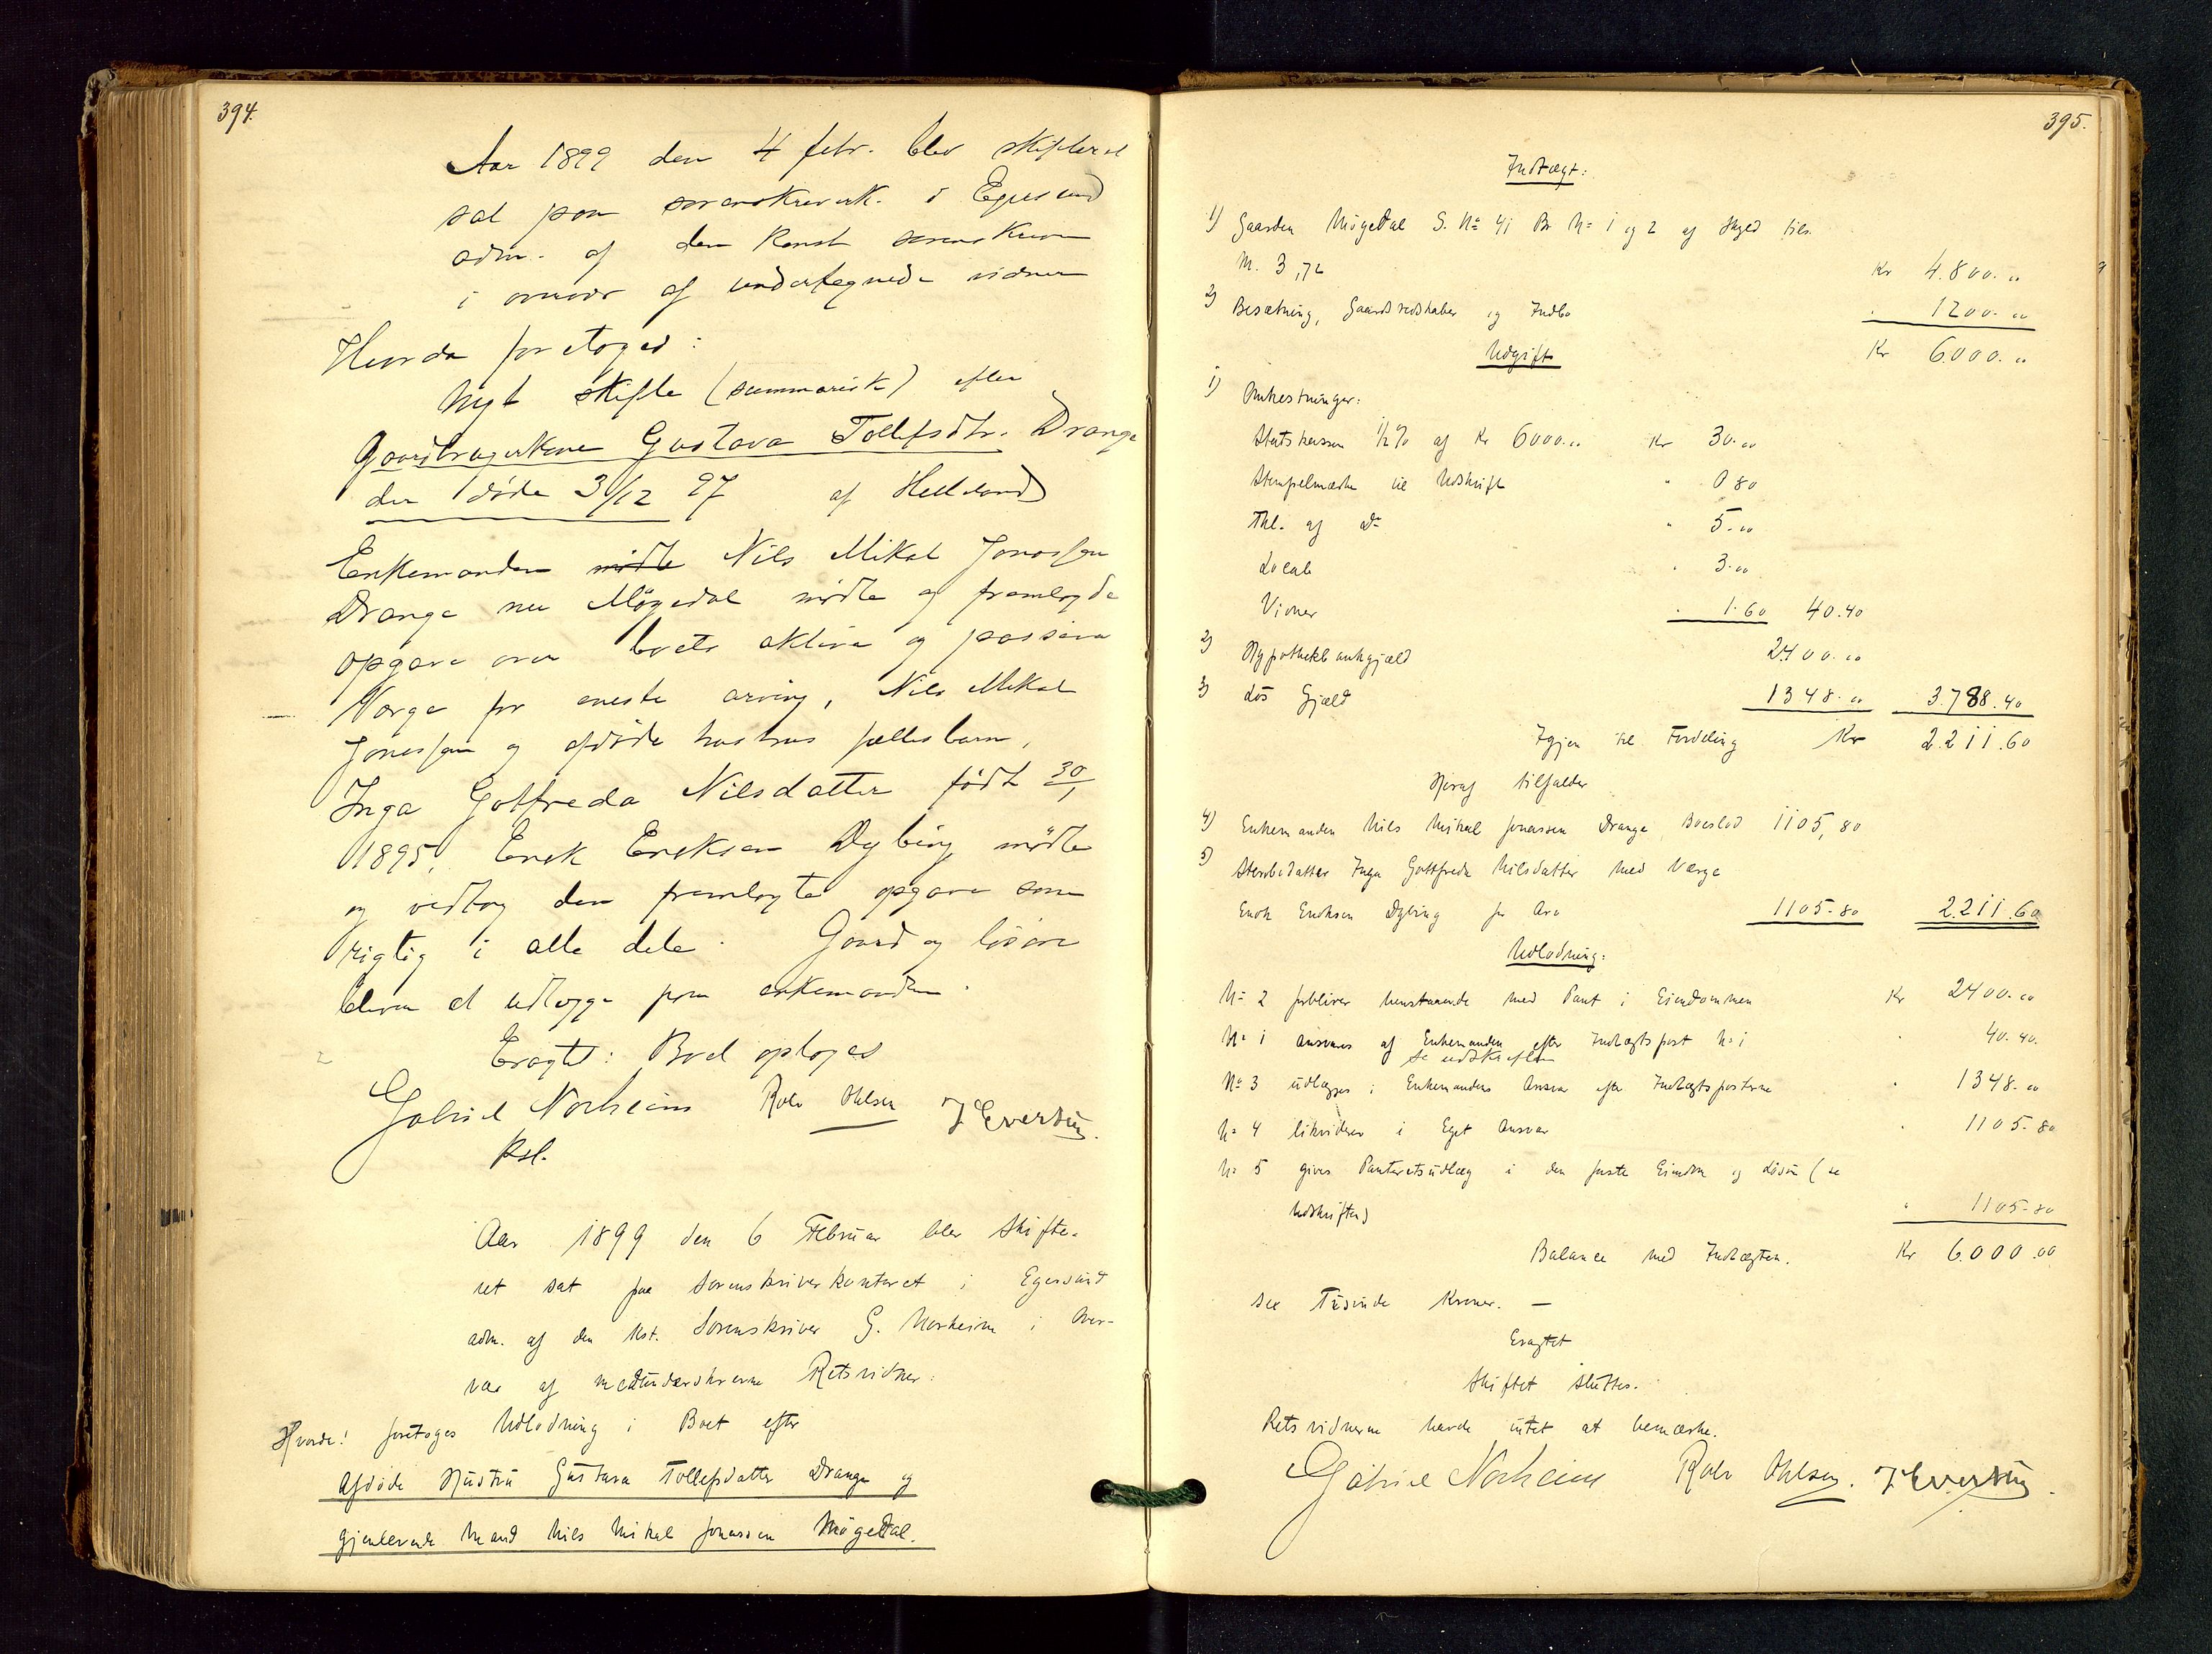 394.
Aar 1899 den 4 febr. blev skifteret
sat paa sorenskriverk. i Egersund
adm. af den Konst. sorenskriver
i overvær af undertegnede vidner
Hvorda foretoges:
Nyt skifte (summarisk) efter
Gaardbrugerkone Gustava Tollefsdtr. Drange
der døde 31/12 97 af Helleland
Enkemanden mødte Nils Mikal Jonassen
Drange nu Møgedal mødte og fremlagde
opgave over boets aktiva og passiva
Værge for eneste arving, Nils Mikal
Jonassen og afdøde hustrus fællesbarn,
Inga Gotfreda Nilsdatter født 30/1
1895, Enok Enoksen Dybing mødte
og vedtog den fremlagte opgave som
rigtig i alle dele. Gaard og løsøre
bliver at udlægge paa enkemanden.
Eragtet: Boet optoges
Gabriel Norheim Rolv Ohlsen J Evertsen.
Kst.
Aar 1899 den 6 Februar blev Skifte-
ret sat paa Sorenskriverkontoret i Egersund
adm. af den Kst. Sorenskriver G. Norheim i Over-
vær af medunderskrevne Retsvidner:
Hvorda! foretoges Udlodning i Boet efter
Afdøde Hustru Gustava Tollefsdatter Drange og
gjenlevende Mand Nils Mikal Jonassen Møgedal.
395.
Indtægt:
1) Gaarden Møgedal G. No 41 Br. No 1 og 2 af Skyld tils.
M. 3,72 Kr 4.800.00
2) Besætning, Gaardsredskaber og Indbo " 1200.00
Udgift Kr 6.000.00
1) Omkostninger:
Statskassen 1/2% af Kr 6000.00 Kr 30.00
Stempelmærke til Udskrift " 0 80
Thl. af Do " 5.00
Lokale " 3.00
Vidner " 1.60 40.40
2) Hypothekbankgjæld 2400.00
3) Løs Gjæld 1348.00 3.788.40
Igjen til Fordeling Kr 2.211.60
Heraf tilfalder
4) Enkemanden Nils Mikal Jonassen Drange Boeslod 1105,80
5) Stervbodatter Inga Gottfreda Nilsdatter med Værge
Enok Enoksen Dybing for Arv 1105-80 2.211.60
Udlodning:
No 2 forbliver henstaaende med Pant i Eiendommen Kr 2400.00
No 1 ansvares af Enkemanden efter Indtægtspost No 1 " 40.40.
se udskriften
No 3 udlægges i Enkemandens Ansvar efter Indtægtsposterne " 1348.00
No 4 likviderer i Eget Ansvar " 1105-80
No 5 gives Panteretsudlæg i den faste Eiendom og Løsøre (se
Udskriften) " 1105-80
Balance med Indtægten. Kr 6.000.00
sex Tusinde Kroner. —
Eragtet
Skiftet sluttes.
Retsvidnerne havde intet at bemærke.
Gabriel Norheim Rolv Ohlsen. J Evertsen.